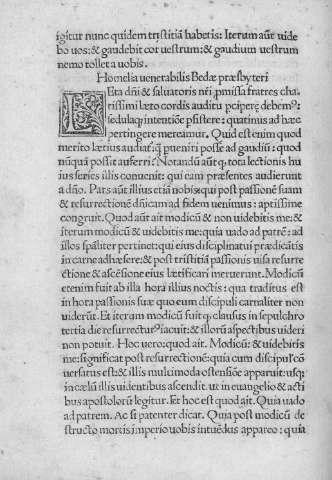 igitur nunc quidem tristitiã habetis: Iterum aũt uide
bo uos: & gaudebit cor uestrum: & gaudium uestrum
nemo tollet a uobis.
Homelia uenerabilis Bedæ præsbyteri
LEta dñi & saluatoris nr̃i ꝓmissa fratres cha
rissimi læto cordis auditu ꝑcipeꝛ debemꝰ:
sedulaqꝫ intentiõe ꝑsistere: quatinus ad hæc
pertingere mereamur. Quid est enim quod
merito lætius audiaꝉ: q̃ ꝑueniri posse ad gaudiũ: quod
nũquã possit auferri: Notandũ aũt ꝙ tota lectionis hu
ius series illis conuenit: qui eam præsentes audierunt
a dño. Pars aũt illius etiã nobis: qui post passionẽ suam
& resurrectionẽ dñicam ad fidem uenimus: aptissime
congruit. Quod aũt ait modicũ & non uidebitis me: &
iterum modicũ & uidebitis me: quia uado ad patrẽ: ad
illos sp̃aliter pertinet: qui eius discipulatui prædicãtis
in carne adhæserẽ: & post tristitiã passionis uisa resurre
ctione & ascẽsione eius lætificari meruerunt. Modicũ
etenim fuit ab illa hora illius noctis: qua traditus est
in hora passionis suæ quo eum discipuli carnaliter non
uiderũt. Et iterum modicũ fuit ꝙ clausus in sepulchro
tertia die resurrecturꝰ iacuit: & illorũ aspectibus uideri
non potuit. Hoc uero: quod ait. Modicũ: & uidebitis
me: significat post resurrectionẽ: quia cum discipulꝭ cõ
uersatus est: & illis multimoda ostensiõe apparuit: usqꝫ
in cælũ illis uidentibus ascendit. ut in euangelio & acti
bus apostolorũ legitur. Et hoc est quod ait. Quia uado
ad patrem. Ac si patenter dicat. Quia post modicũ de
structo mortis imperio uobis intuẽdus appareo: quia